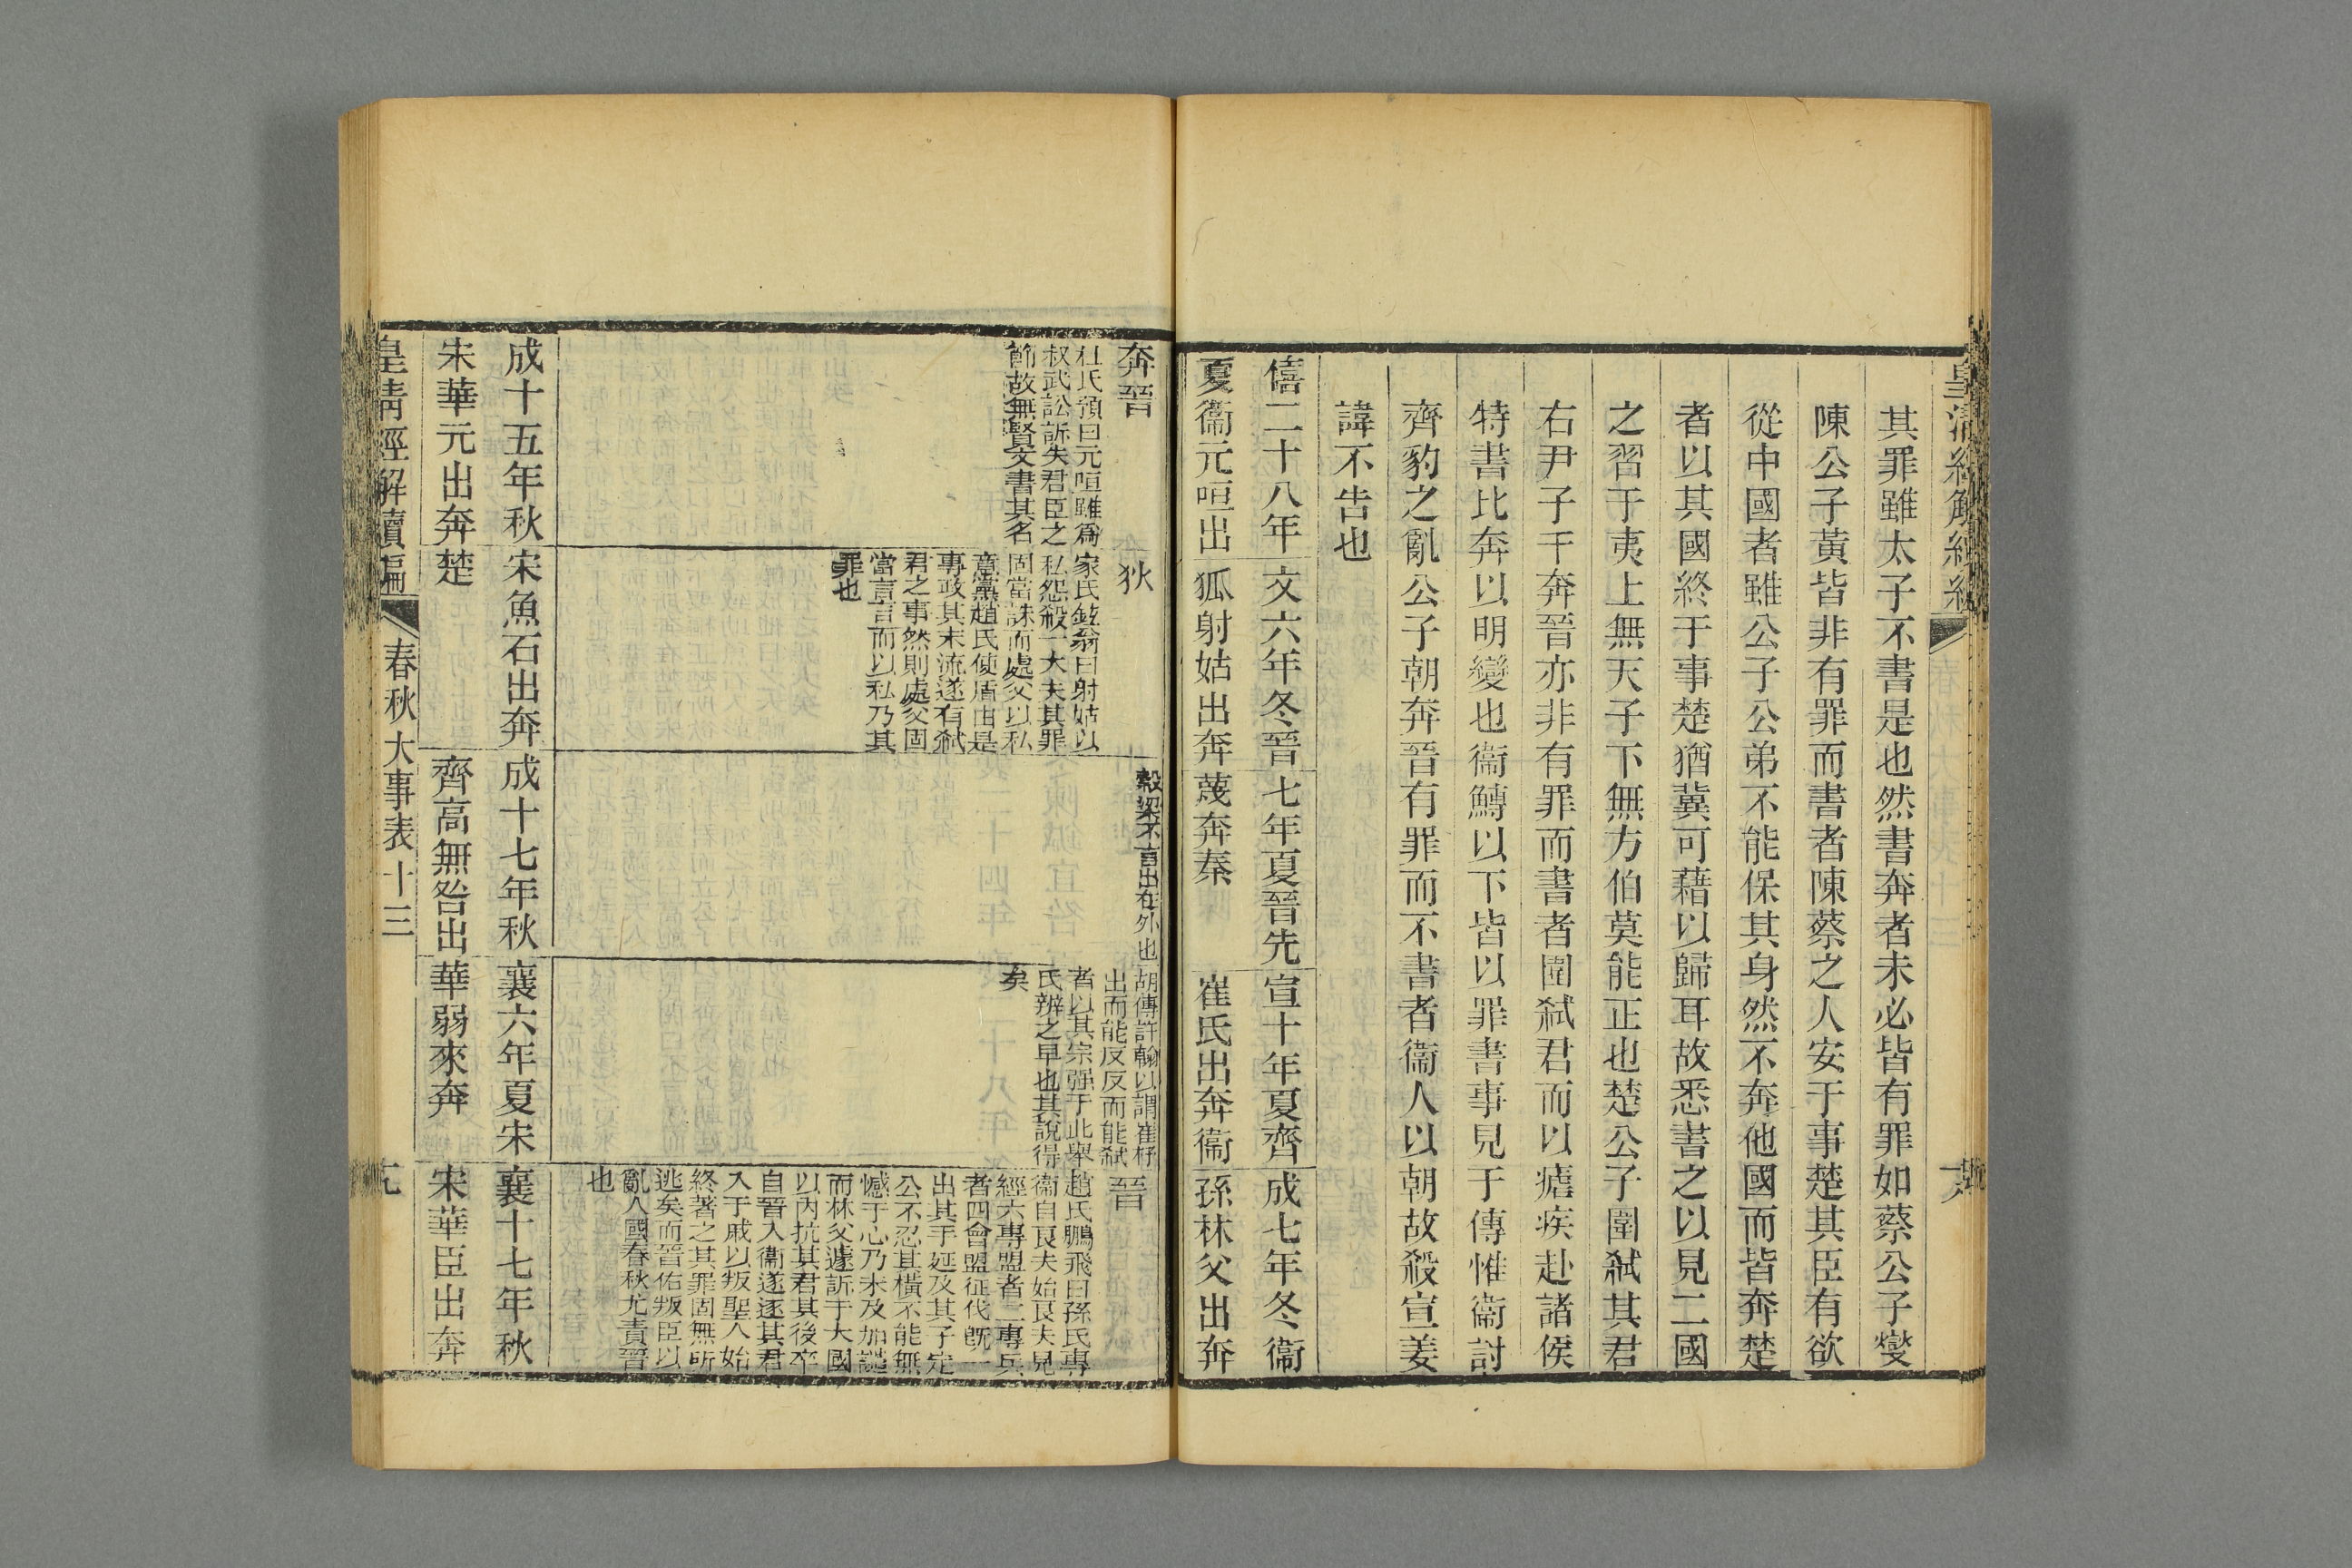 其罪雖太子不書是也然書奔者未必皆有罪如蔡公子燮
陳公子黃皆非有罪而書者陳蔡之人安于事楚其臣有欲
從中國者雖公子公弟不能保其身然不奔他國而皆奔楚
者以其國終于事楚猶冀可藉以歸耳故悉書之以見二國
之習于夷上無天子下無方伯莫能正也楚公子圍弑其君
右尹子干奔晉亦非有罪而書者圍弑君而以瘧疾赴諸侯
特書比奔以明變也衞鱄以下皆以罪書事見于傳惟衞討
齊豹之亂公子朝奔晉有罪而不書者衞人以朝故殺宣姜
諱不告也
僖二十八年
夏衞元咺出
奔晉
杜氏預曰元咺雖爲
叔武訟訴失君臣之
節故無賢文書其名
文六年冬晉
狐射姑出奔
狄
家氏鉉翁曰射姑以
私怨殺一大夫其罪
固當誅而處父以私
意黨趙氏使盾由是
專政其末流遂有弑
君之事然則處父固
當言言而以私乃其
罪也
七年夏晉先
蔑奔秦
穀梁不言出在外也
宣十年夏齊
崔氏出奔衞
胡傳許翰以謂崔杼
出而能反反而能弑
者以其宗强于此舉
氏辨之早也其說得
矣
成七年冬衞
孫林父出奔
晉
趙氏鵬飛曰孫氏專
衞自良夫始良夫見
經六專盟者二專兵
者四會盟征伐旣一
出其手延及其子定
公不忍其橫不能無
憾于心乃未及加譴
而林父遽訴于大國
以內抗其君其後卒
自晉入衞遂逐其君
入于戚以叛聖人始
終著之其罪固無所
逃矣而晉佑叛臣以
亂人國春秋尤責晉
也
成十五年秋
宋華元出奔
宋魚石出奔
楚
成十七年秋
齊高無咎出
襄六年夏宋
華弱來奔
襄十七年秋
宋華臣出奔
皇清經解續編
春秋大事表十三